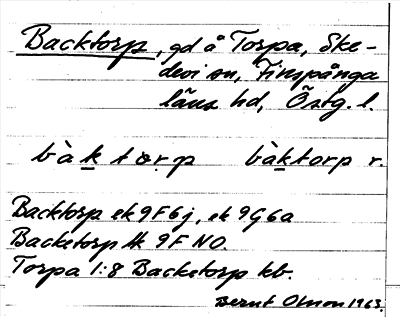 Backtorp, gd å Torpa, Ske-
devi sn, Finspånga
läns hd, Östg. l.
bàktorp bàktorp r.
Backtorp ek 9F6j, ek 9G6a
Backetorp tk 9F NO.
Torpa 1:8 Backetorp kb.
Bernt Olsson 1963.